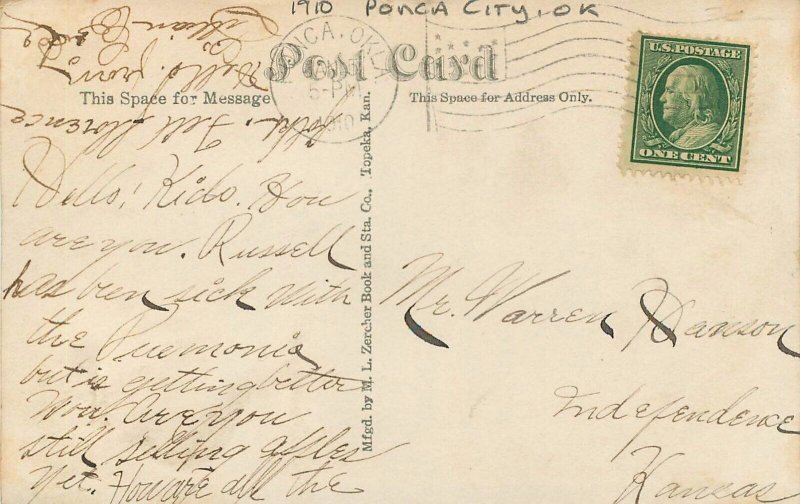 1910 PONCA CITY, OK
PONCA, OKLA.
5-PM
1910
U.S. POSTAGE
ONE CENT
Post Card
This Space for Message
This Space for Address Only.
Mfgd. by M. L. Zercher Book and Sta. Co., Topeka, Kan.
Hello! Kido. How
are you. Russell
has ben sick with
the Pnemonia
but is getting better
Now. Are you
still selling apples
yet. How are all the
folks. Tell Florence
Hello from
Mr. Warren Hanson
Independence
Kansas